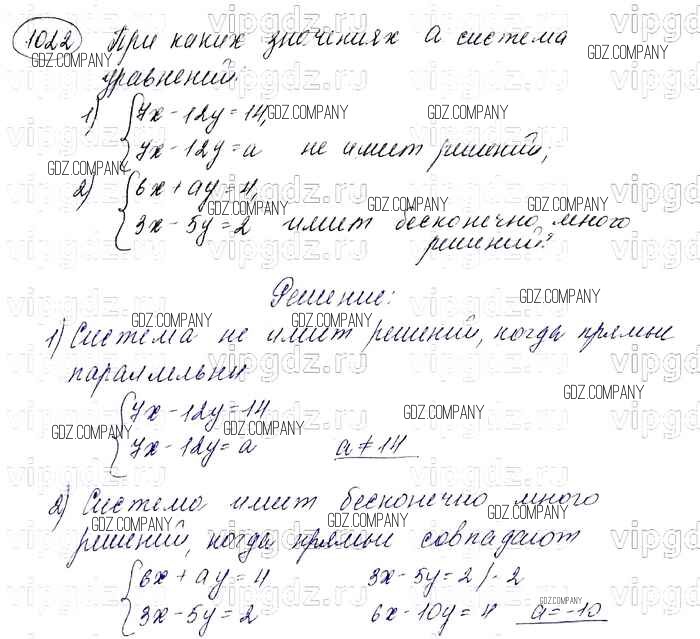 1022 При каких значениях а система
уравнений:
1) { 7x - 12y = 14,
7x - 12y = a не имеет решений;
2) { 6x + ay = 4,
3x - 5y = 2 имеет бесконечно много
решений?
Решение:
1) Система не имеет решений, когда прямые
параллельны
{ 7x - 12y = 14
7x - 12y = a a ≠ 14
2) Система имеет бесконечно много
решений, когда прямые совпадают
{ 6x + ay = 4 3x - 5y = 2 / · 2
3x - 5y = 2 6x - 10y = 4 a = -10
GDZ.COMPANY
vipgdz.ru